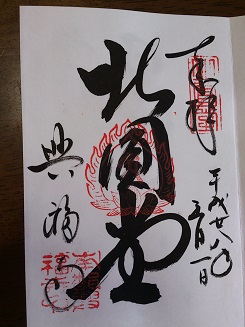 奉拝
平成廿八年
五月一日
北圓堂
興福寺